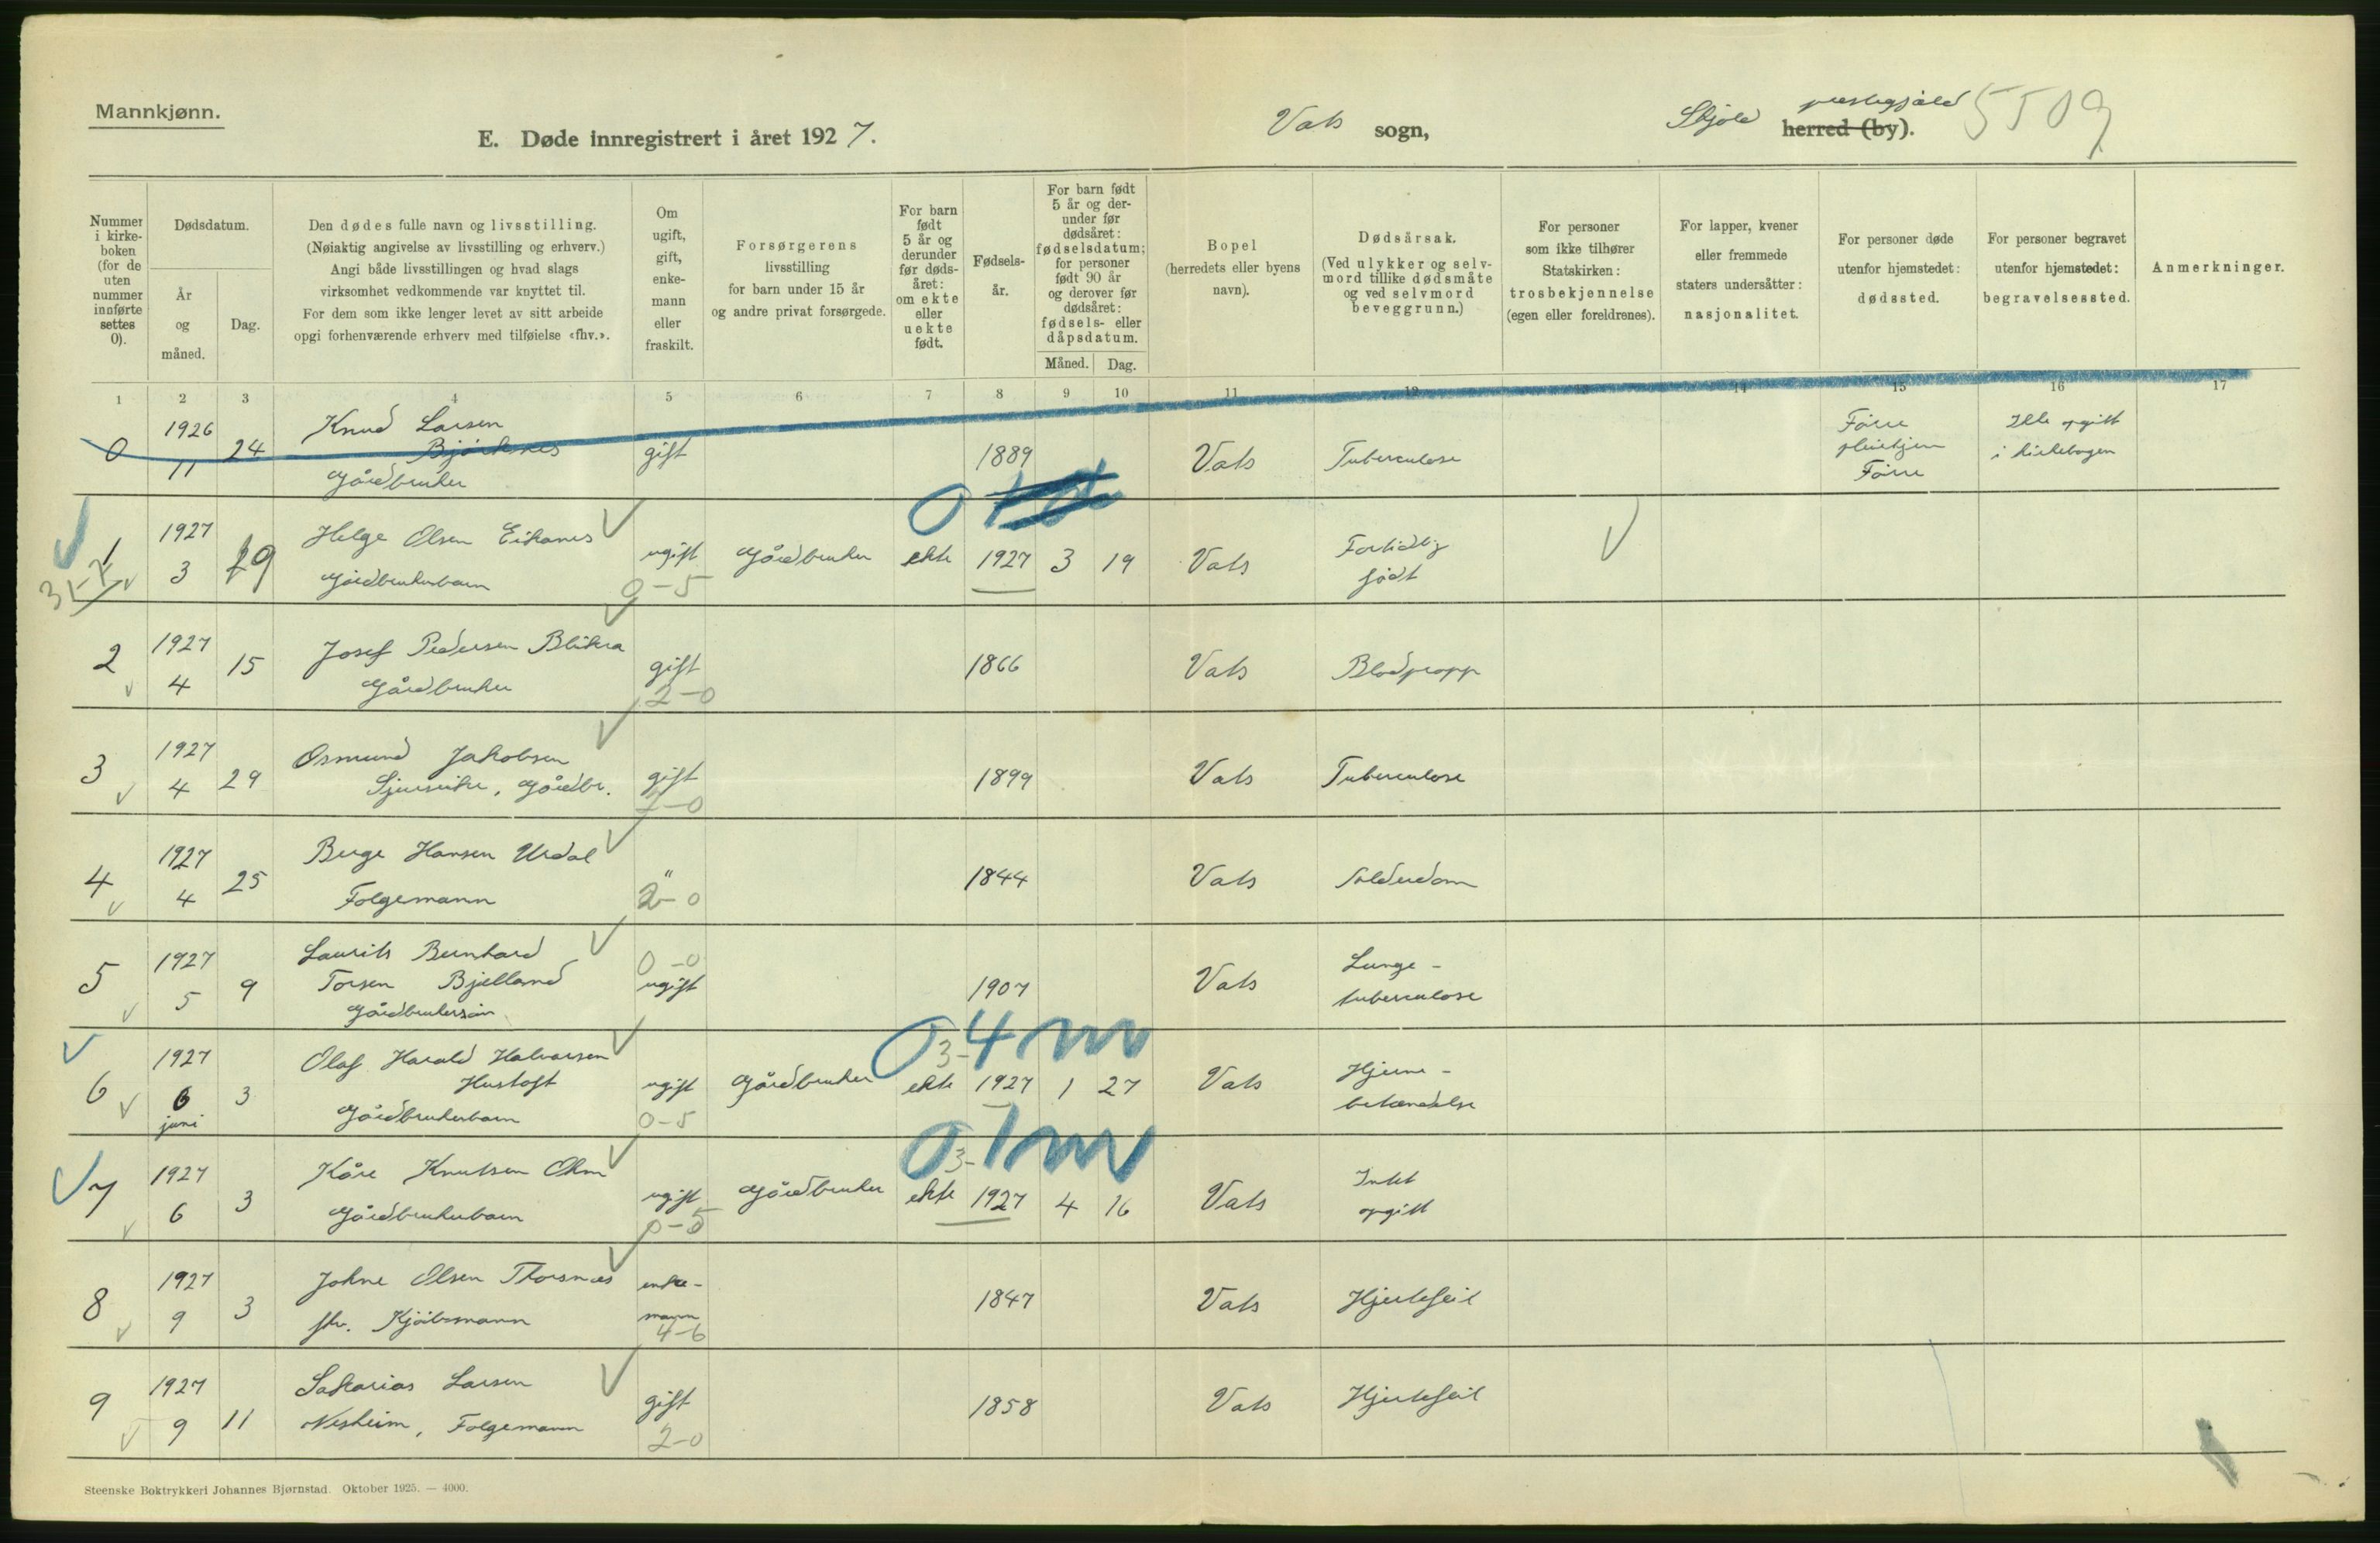 Mannkjønn.
E. Døde innregistrert i året 1927.
Vats sogn,
Skjold prestegjeld herred (by).
5509
Nummer i kirkeboken (for de uten nummer innførte settes 0).
Dødsdatum.
År og måned.
Dag.
Den dødes fulle navn og livsstilling.
(Nøiaktig angivelse av livsstilling og erhverv.)
Angi både livsstillingen og hvad slags
virksomhet vedkommende var knyttet til.
For dem som ikke lenger levet av sitt arbeide
opgi forhenværende erhverv med tilføielse «fhv.».
Om ugift, gift, enkemann eller fraskilt.
Forsørgerens livsstilling for barn under 15 år og andre privat forsørgede.
For barn født 5 år og derunder før dødsåret: om ekte eller uekte født.
Fødselsår.
For barn født 5 år og derunder før dødsåret: fødselsdatum; for personer født 90 år og derover før dødsåret: fødsels- eller dåpsdatum.
Måned. Dag.
Bopel (herredets eller byens navn).
Dødsårsak. (Ved ulykker og selvmord tillike dødsmåte og ved selvmord beveggrunn.)
For personer som ikke tilhører Statskirken: trosbekjennelse (egen eller foreldrenes).
For lapper, kvener eller fremmede staters undersåtter: nasjonalitet.
For personer døde utenfor hjemstedet: dødssted.
For personer begravet utenfor hjemstedet: begravelsessted.
Anmerkninger.
1 2 3 4 5 6 7 8 9 10 11 12 13 14 15 16 17
0 1926 11 24 Knud Larsen Gårdbruker gift 1889 Vats Tuberculose Førre pleiehjem Førre Ikke opgitt i kirkebogen
1 1927 3 29 Helge Olsen Eikanes Gårdbrukerbarn ugift 0-5 Gårdbruker ekte 1927 3 19 Vats Fortidlig født
2 1927 4 15 Josef Pedersen Blikra Gårdbruker gift 2-0 1866 Vats Blodpropp
3 1927 4 29 Osmund Jakobsen Gårdbr. gift 2-0 1899 Vats Tuberculose
4 1927 4 25 Berge Hansen Urdal Folgemann " 2-0 1844 Vats Alderdom
5 1927 5 9 Laurits Bernhard Torsen Bjelland Gårdbrukersøn 0-0 ugift 1907 Vats Lunge-tuberculose
6 1927 6 juni 3 Olaf Harald Halvorsen Hustoft Gårdbrukerbarn ugift 0-5 Gårdbruker ekte 0 3-4 m 1927 1 27 Vats Hjerne-betændelse
7 1927 6 3 Kåre Knutsen Gårdbrukerbarn ugift 0-5 Gårdbruker ekte 0 3- 1 m 1927 4 16 Vats Intet opgitt
8 1927 9 3 Johne Olsen Thorsnæs fhv. Kjøbmann enke-mann 4-6 1847 Vats Hjertefeil
9 1927 9 11 Sakarias Larsen Nesheim, Folgemann gift 2-0 1858 Vats Hjertefeil
Steenske Boktrykkeri Johannes Bjørnstad. Oktober 1925. — 4000.